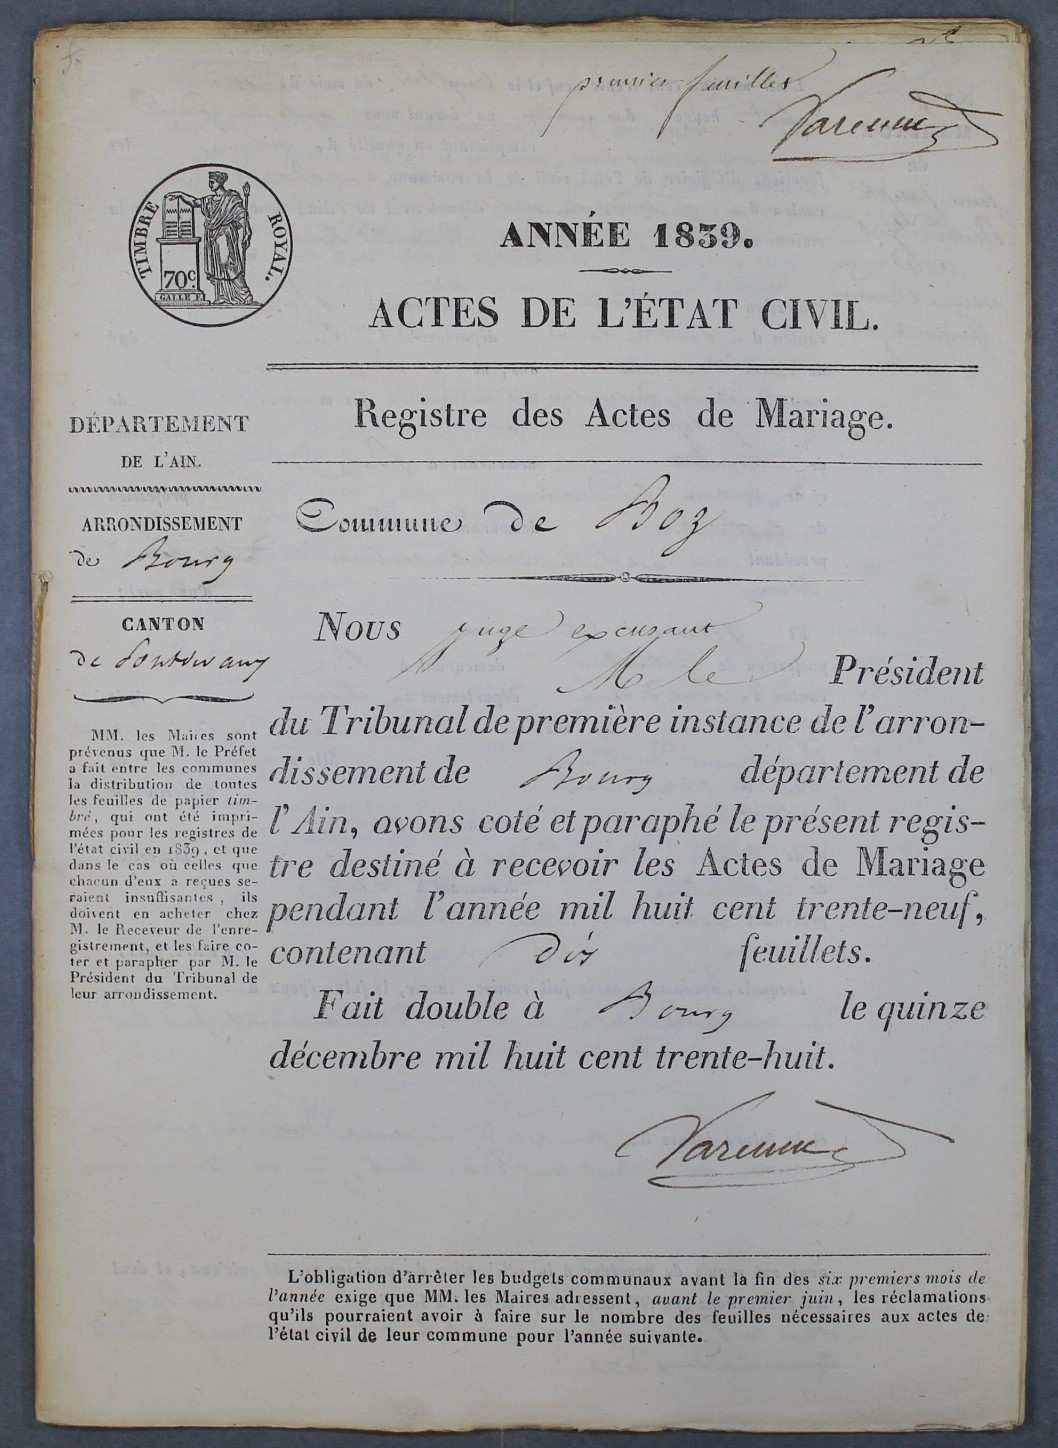 premier feuillet
Varenne
TIMBRE ROYAL.
70c.
GALLE F.
ANNÉE 1839.
ACTES DE L'ÉTAT CIVIL.
Registre des Actes de Mariage.
DÉPARTEMENT
DE L'AIN.
ARRONDISSEMENT
de Bourg
CANTON
de Pontdevaux
MM. les Maires sont
prévenus que M. le Préfet
a fait entre les communes
la distribution de toutes
les feuilles de papier tim-
bré, qui ont été impri-
mées pour les registres de
l'état civil en 1839, et que
dans le cas où celles que
chacun d'eux a reçues se-
raient insuffisantes, ils
doivent en acheter chez
M. le Receveur de l'enre-
gistrement, et les faire co-
ter et parapher par M. le
Président du Tribunal de
leur arrondissement.
Commune de Boz
Nous juge excusant
M le Président
du Tribunal de première instance de l'arron-
dissement de Bourg département de
l'Ain, avons coté et paraphé le présent regis-
tre destiné à recevoir les Actes de Mariage
pendant l'année mil huit cent trente-neuf,
contenant dix feuillets.
Fait double à Bourg le quinze
décembre mil huit cent trente-huit.
Varenne
L'obligation d'arrêter les budgets communaux avant la fin des six premiers mois de
l'année exige que MM. les Maires adressent, avant le premier juin, les réclamations
qu'ils pourraient avoir à faire sur le nombre des feuilles nécessaires aux actes de
l'état civil de leur commune pour l'année suivante.